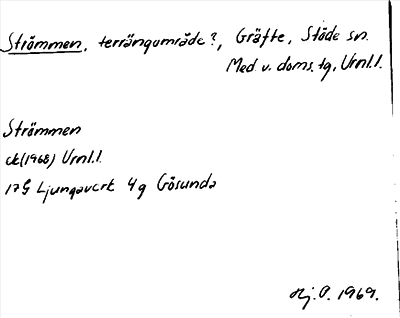 Strömmen, terrängområde?, Gräfte, Stöde sn.
Med v. doms. tg, Vrnl.l.
Strömmen
ek(1968) Vrnl.l.
17G Ljungaverk 4g Gösunda
Hj. P. 1969.